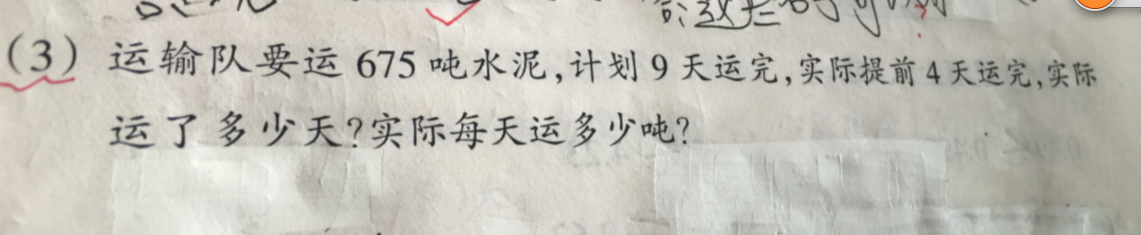 (3) 运输队要运 675 吨水泥,计划 9 天运完,实际提前 4 天运完,实际
运了多少天?实际每天运多少吨?